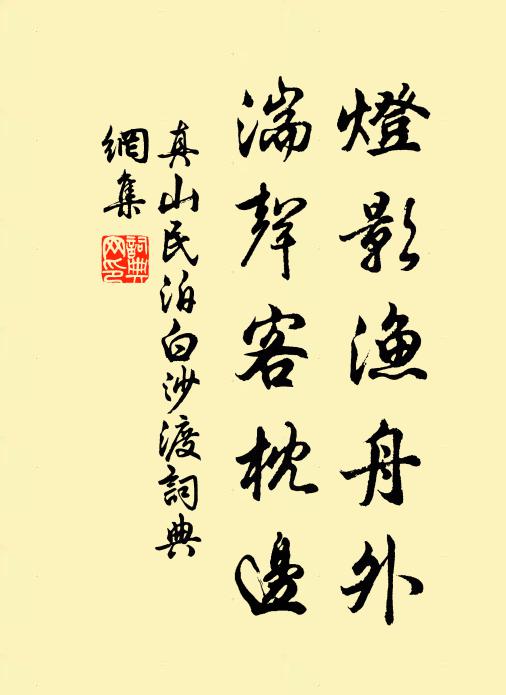 燈影漁舟外
湍聲客枕邊
真山民泊白沙渡詞典
網集
詞典
网印